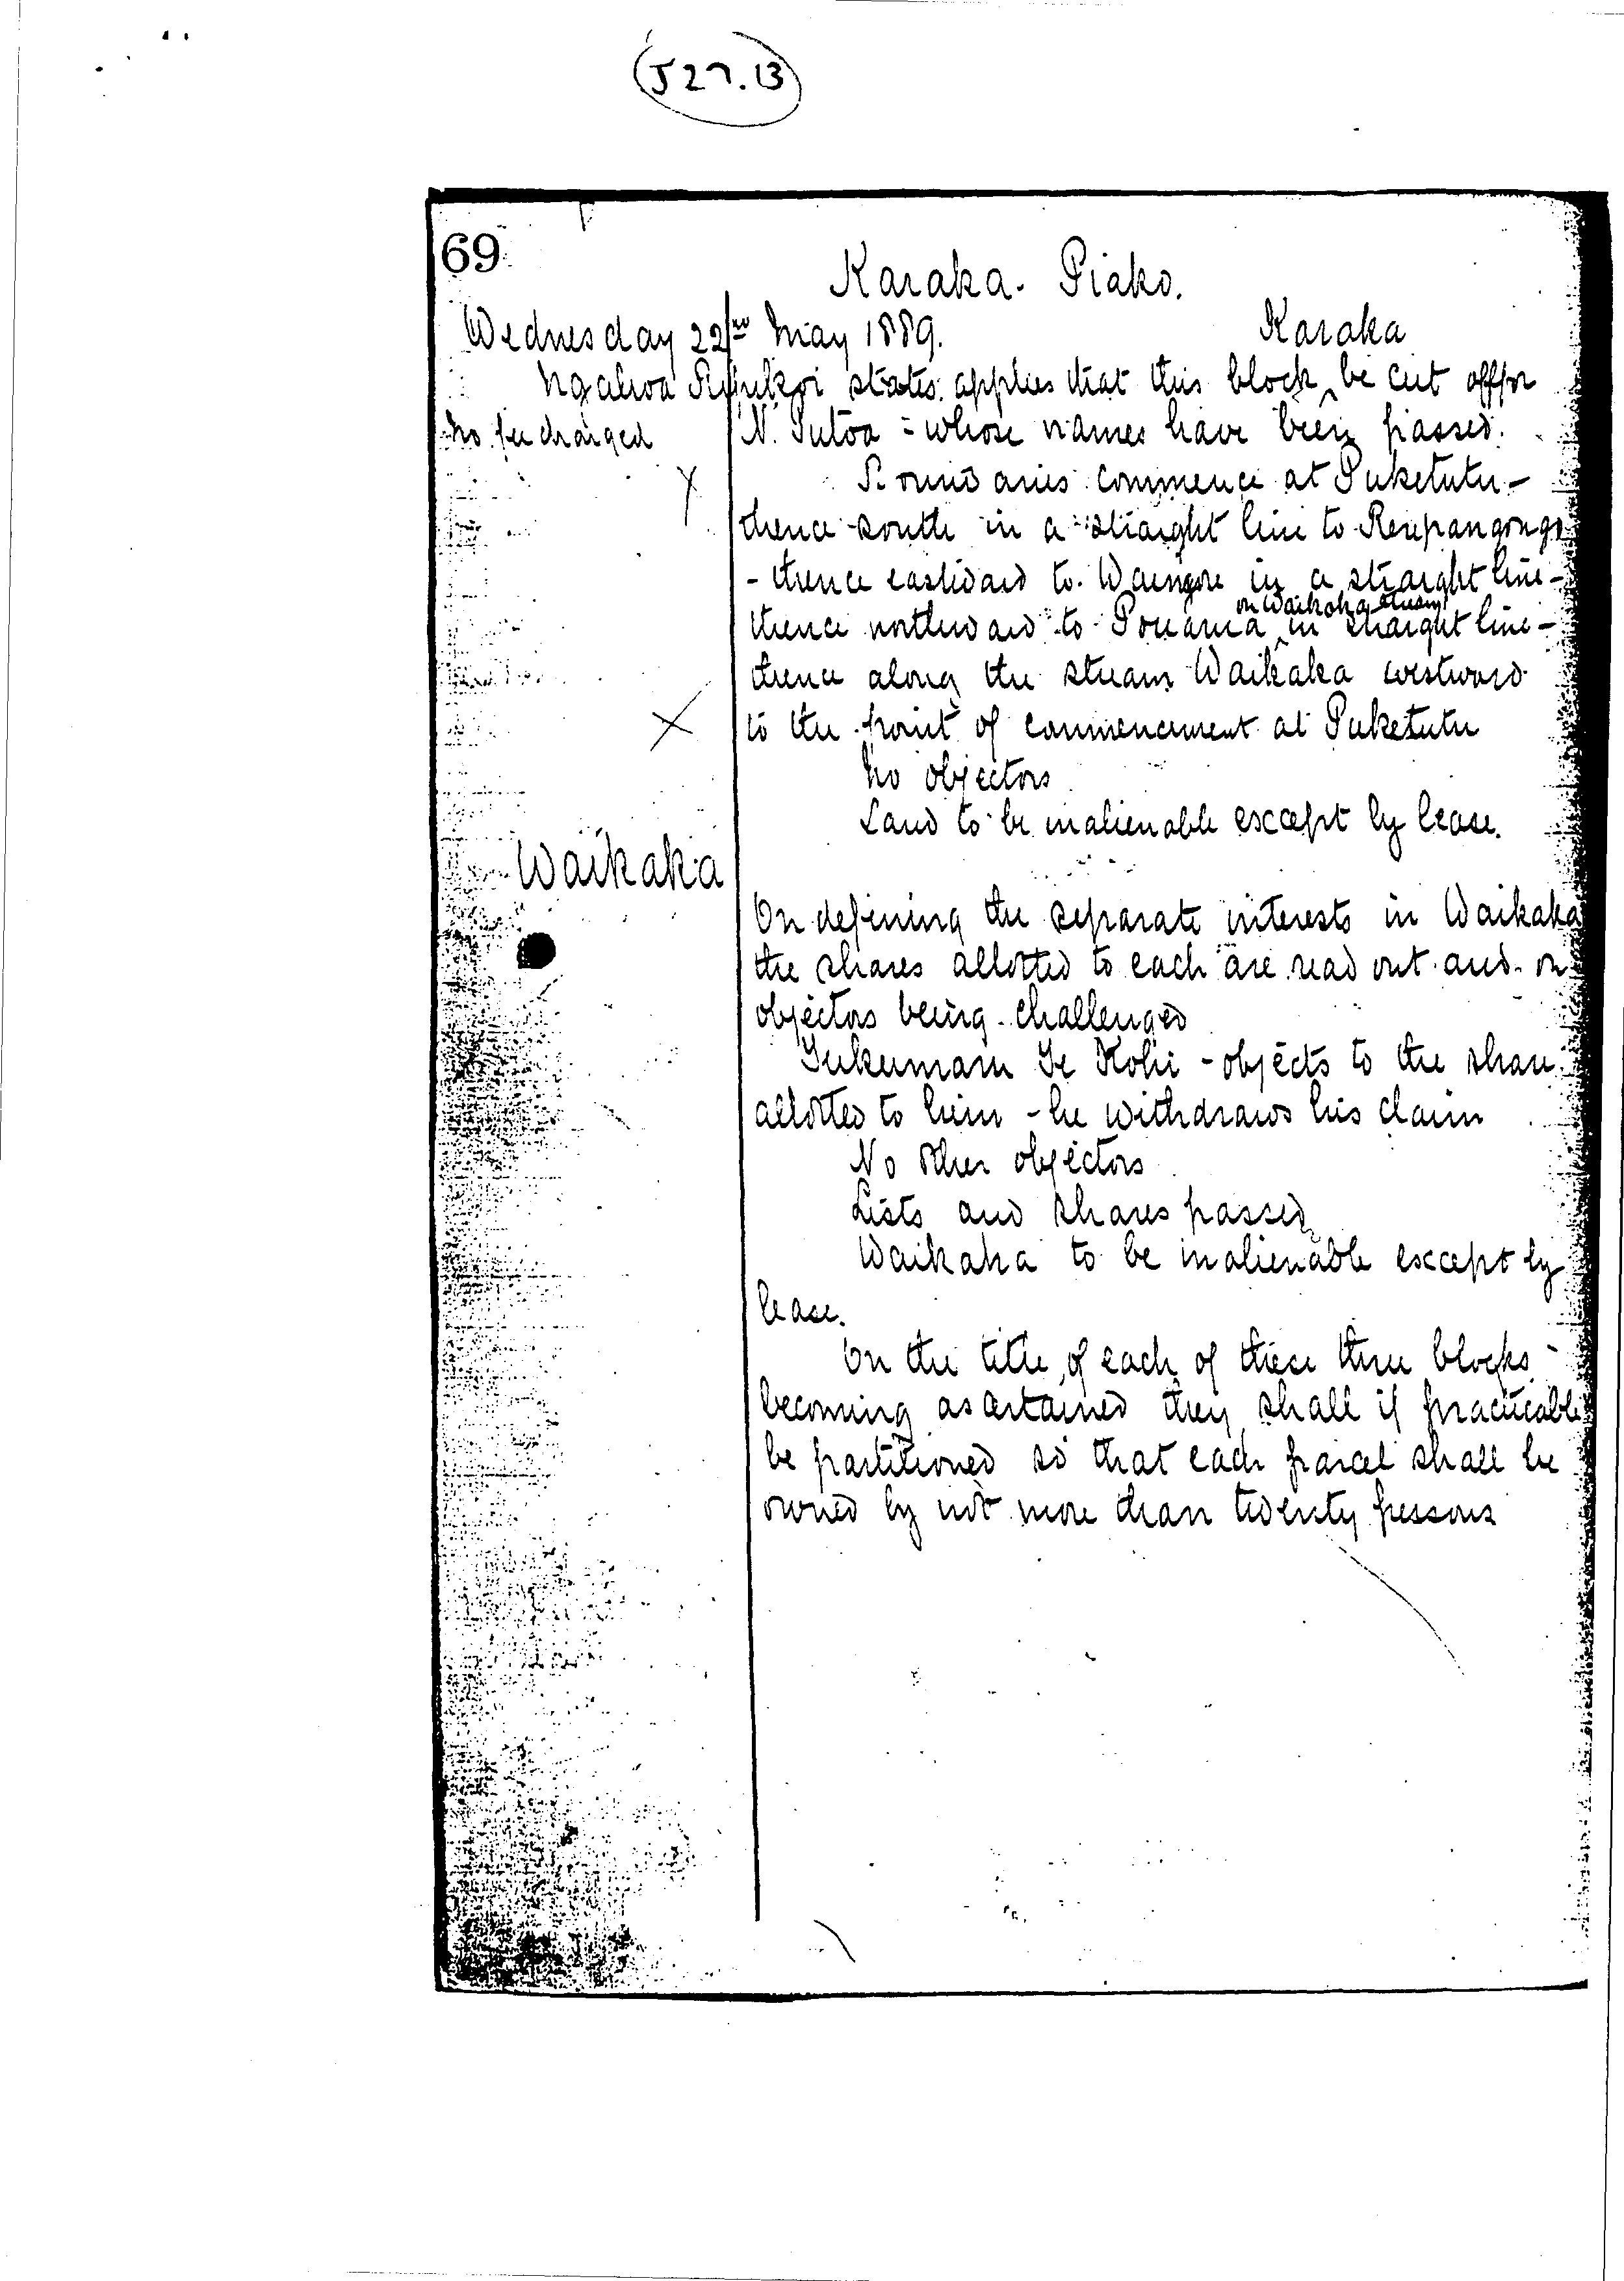 J27.13
69
Karaka. Piako.
Wednesday 22nd May 1889. Karaka
Ngahoa states applies that this block be cut off for
No fee charged
N. Tutoa - whose names have been passed.
Boundaries commence at Puketutu -
thence south in a straight line to
- thence eastward to in a straight line -
on Waikaka stream
thence northward to in straight line -
thence along the stream Waikaka westward
to the point of commencement at Puketutu
No objectors
Land to be inalienable except by lease.
Waikaka
On defining the separate interests in Waikaka
the shares allotted to each are read out and on
objectors being challenged
Te Kohi - objects to the share
allotted to him - he withdraws his claim
No other objectors
Lists and shares passed
Waikaka to be inalienable except by
lease.
On the title of each of these three blocks
becoming ascertained they shall if practicable
be partitioned so that each parcel shall be
owned by not more than twenty persons